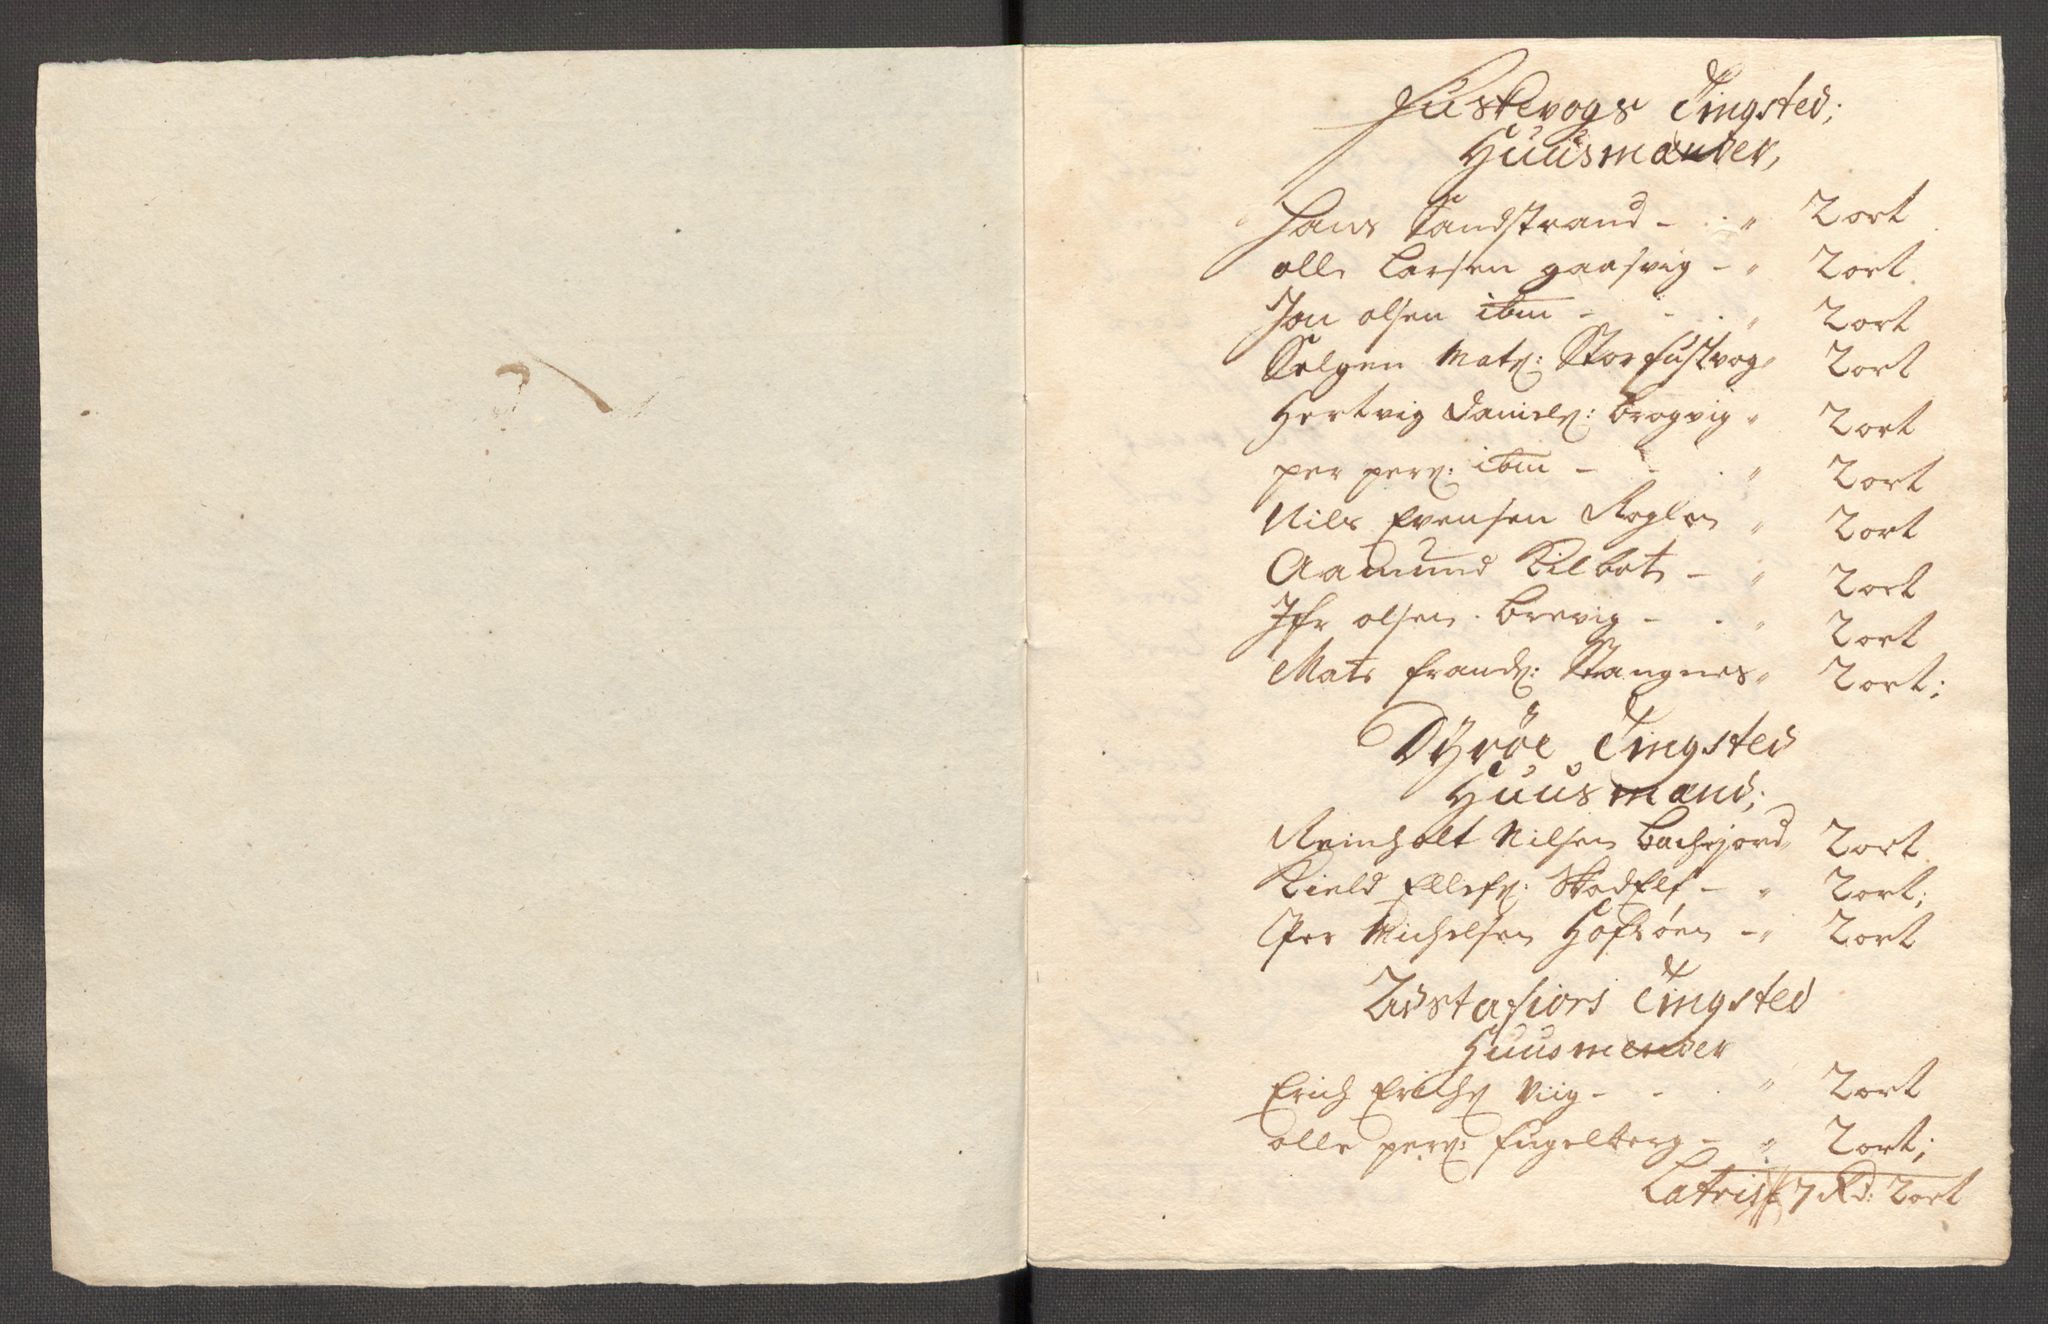 Fuskevogs Tingsted;
Huusmænder,
Hans Sandstrand - . " 2 ort
olle Larsen gaasvig - " 2 ort
Jon olsen ibm - - . " 2 ort
Mats: Storfustvog " 2 ort
Hertvig Daniels: brogvig " 2 ort
per pers: ibm - - . " 2 ort
Nils Evensen Roglen " 2 ort
Aamund Kilbotn - " 2 ort
olsen . brevig - . " 2 ort
Mats frands: Stangnes " 2 ort;
Dyrøe Tingsted
Huusmænd;
Reinholt Nilsen backejord " 2 ort
Kield Ellefs: SkodElf - " 2 ort;
Per Michelsen Hofsøen - " 2 ort
Tingsted
Huusmender
Erich Erichs Viig - - . " 2 ort
olle pers: fugelberg - " 2 ort;
Latris 7 Rd: 2 ort